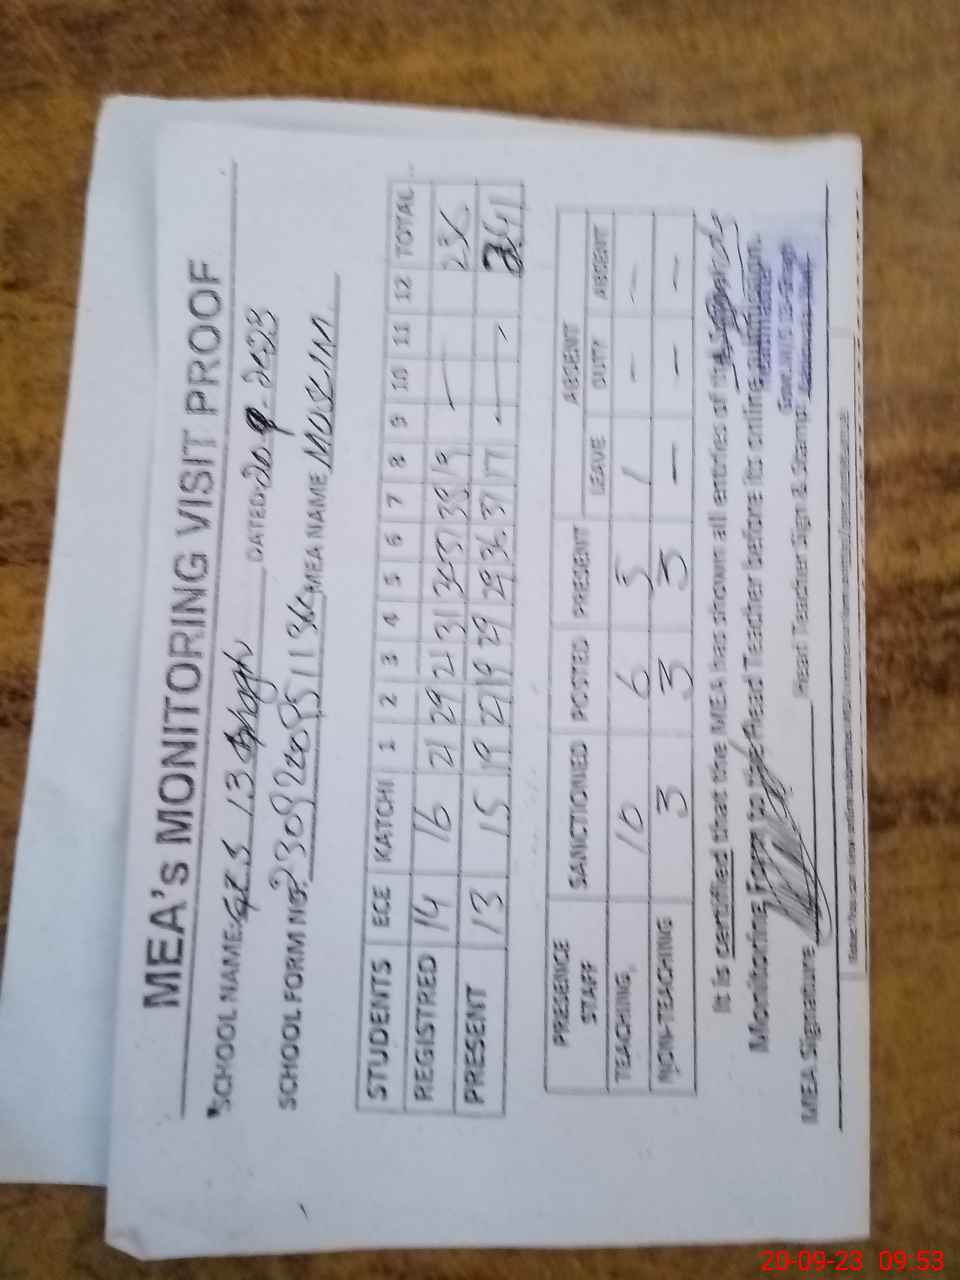 MEA's MONITORING VISIT PROOF
SCHOOL NAME: GES 13 DATED: 20-9-2023
SCHOOL FORM NO: MEA NAME MUSLIM
STUDENTS ECE KATCHI 1 2 3 4 5 6 7 8 9 10 11 12 TOTAL
REGISTRED 14 16 21 29 21 31 30 37 38 19 256
PRESENT 13 15 19 27 19 29 29 36 37 17 241
PRESENCE STAFF SANCTIONED POSTED PRESENT LEAVE ABSENT DUTY ABSENT
TEACHING 10 6 5 1 - -
NON-TEACHING 3 3 3 - - -
It is certified that the MEA has shown all entries of the
Monitoring Form to the Head Teacher before its online submission.
MEA Signature Head Teacher Sign & Stamp
20-09-23 09:53